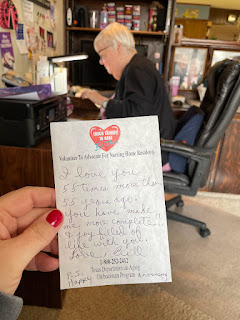 Volunteer To Advocate For Nursing Home Residents
I love you
55 times more than
55 years ago.
you have make
me more complete!!
& joy filled
life with you.
Love Bill
1-800-252-2412
Texas Department on Aging
Ombudsman Program
P.S.
Happy Anniversary